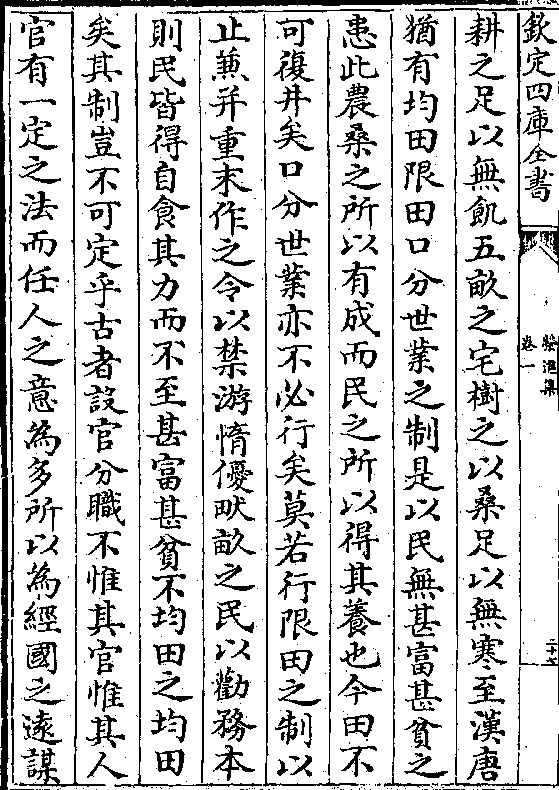 欽定四庫全書
榮進集
卷一
耕之足以無飢五畝之宅樹之以桑足以無寒至漢唐
猶有均田限田口分世業之制是以民無甚富甚貧之
患此農桑之所以有成而民之所以得其養也今田不
可復井矣口分世業亦不必行矣莫若行限田之制以
止兼并重末作之令以禁游惰優畎畝之民以勸務本
則民皆得自食其力而不至甚富甚貧不均田之均田
矣其制豈不可定乎古者設官分職不惟其官惟其人
官有一定之法而任人之意為多所以為經國之遠謀